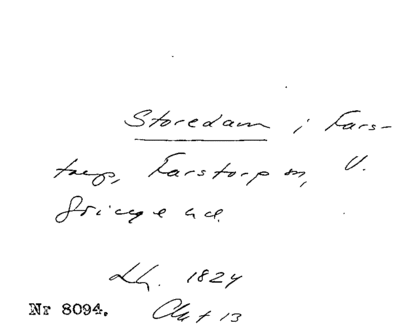 Storedam i Fars-
torp, Farstorp sn, V.
Göinge hd.
Lh. 1824
Nr 8094. Akt 13